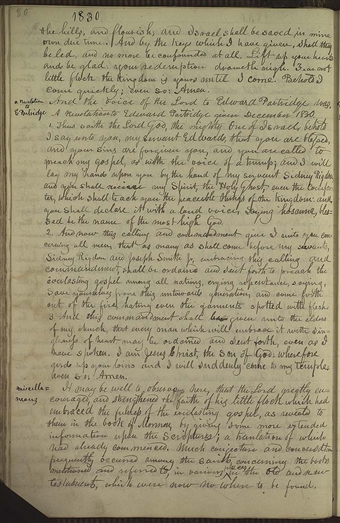 1830
the hills, and flourish; and Israel shall be saved in mine
own due time. And by the keys which I have given, shall they
be led, and no more be confounded at all. Lift up your hearts
and be glad: your redemption draweth nigh. Fear not
little flock the kingdom is yours until I come. Behold I
come quickly; even so: Amen.
And the voice of the Lord to Edward Partridge was,
A Revelation to Edward Partridge given December 1830.
1 Thus saith the Lord God, the mighty One of Israel, behold
I say unto you, my servant Edward, that you are blessed,
and your sins are forgiven you, and you are called to
preach my gospel, as with the voice of a trump; and I will
lay my hands upon you by the hand of my servant Sidney Rigdon
and you shall receive my Spirit, the Holy Ghost, even the Comfor-
ter, which shall teach you the peaceable things of the kingdom: and
you shall declare it with a loud voice, saying hosanna, bles-
sed is the name of the most high God.
2 And now this calling and commandment give I unto you con-
cerning all men, that as many as shall come before my servants,
Sidney Rigdon and Joseph Smith jr, embracing this calling and
commandment, shall be ordained and sent forth to preach the
everlasting gospel among all nations, crying repentance, saying,
Save yourselves from this untoward generation, and come forth
out of the fire, hating even the garments spotted with the flesh.
3 And this commandment shall be given unto the elders
of my church, that every man which will embrace it with sin-
gleness of heart may be ordained and sent forth, even as I
have spoken. I am Jesus Christ, the Son of God: wherefore
gird up your loins and I will suddenly come to my temple:
even so: Amen.
It may be well to observe here, that the Lord greatly en-
couraged and strengthened the faith of his little flock which had
embraced the fulness of the everlasting gospel, as revealed to
them in the book of Mormon, by giving some more extended
information upon the Scriptures; a translation of which
had already commenced. Much conjecture and conversation
frequently occurred among the saints, concerning the books
mentioned and referred to, in various places in the old and new
testaments, which were now no where to be found.